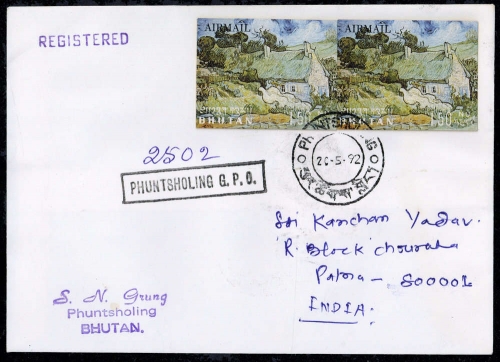 REGISTERED
AIRMAIL AIRMAIL
BHUTAN BHUTAN
2502
PHUNTSHOLING G. P. O.
PHUNTSHOLING
20-5-92
Sri Kanchan Yadav.
R. Block Chouraha
Patna – 800001
INDIA.
S. N. Grung
Phuntsholing
BHUTAN.